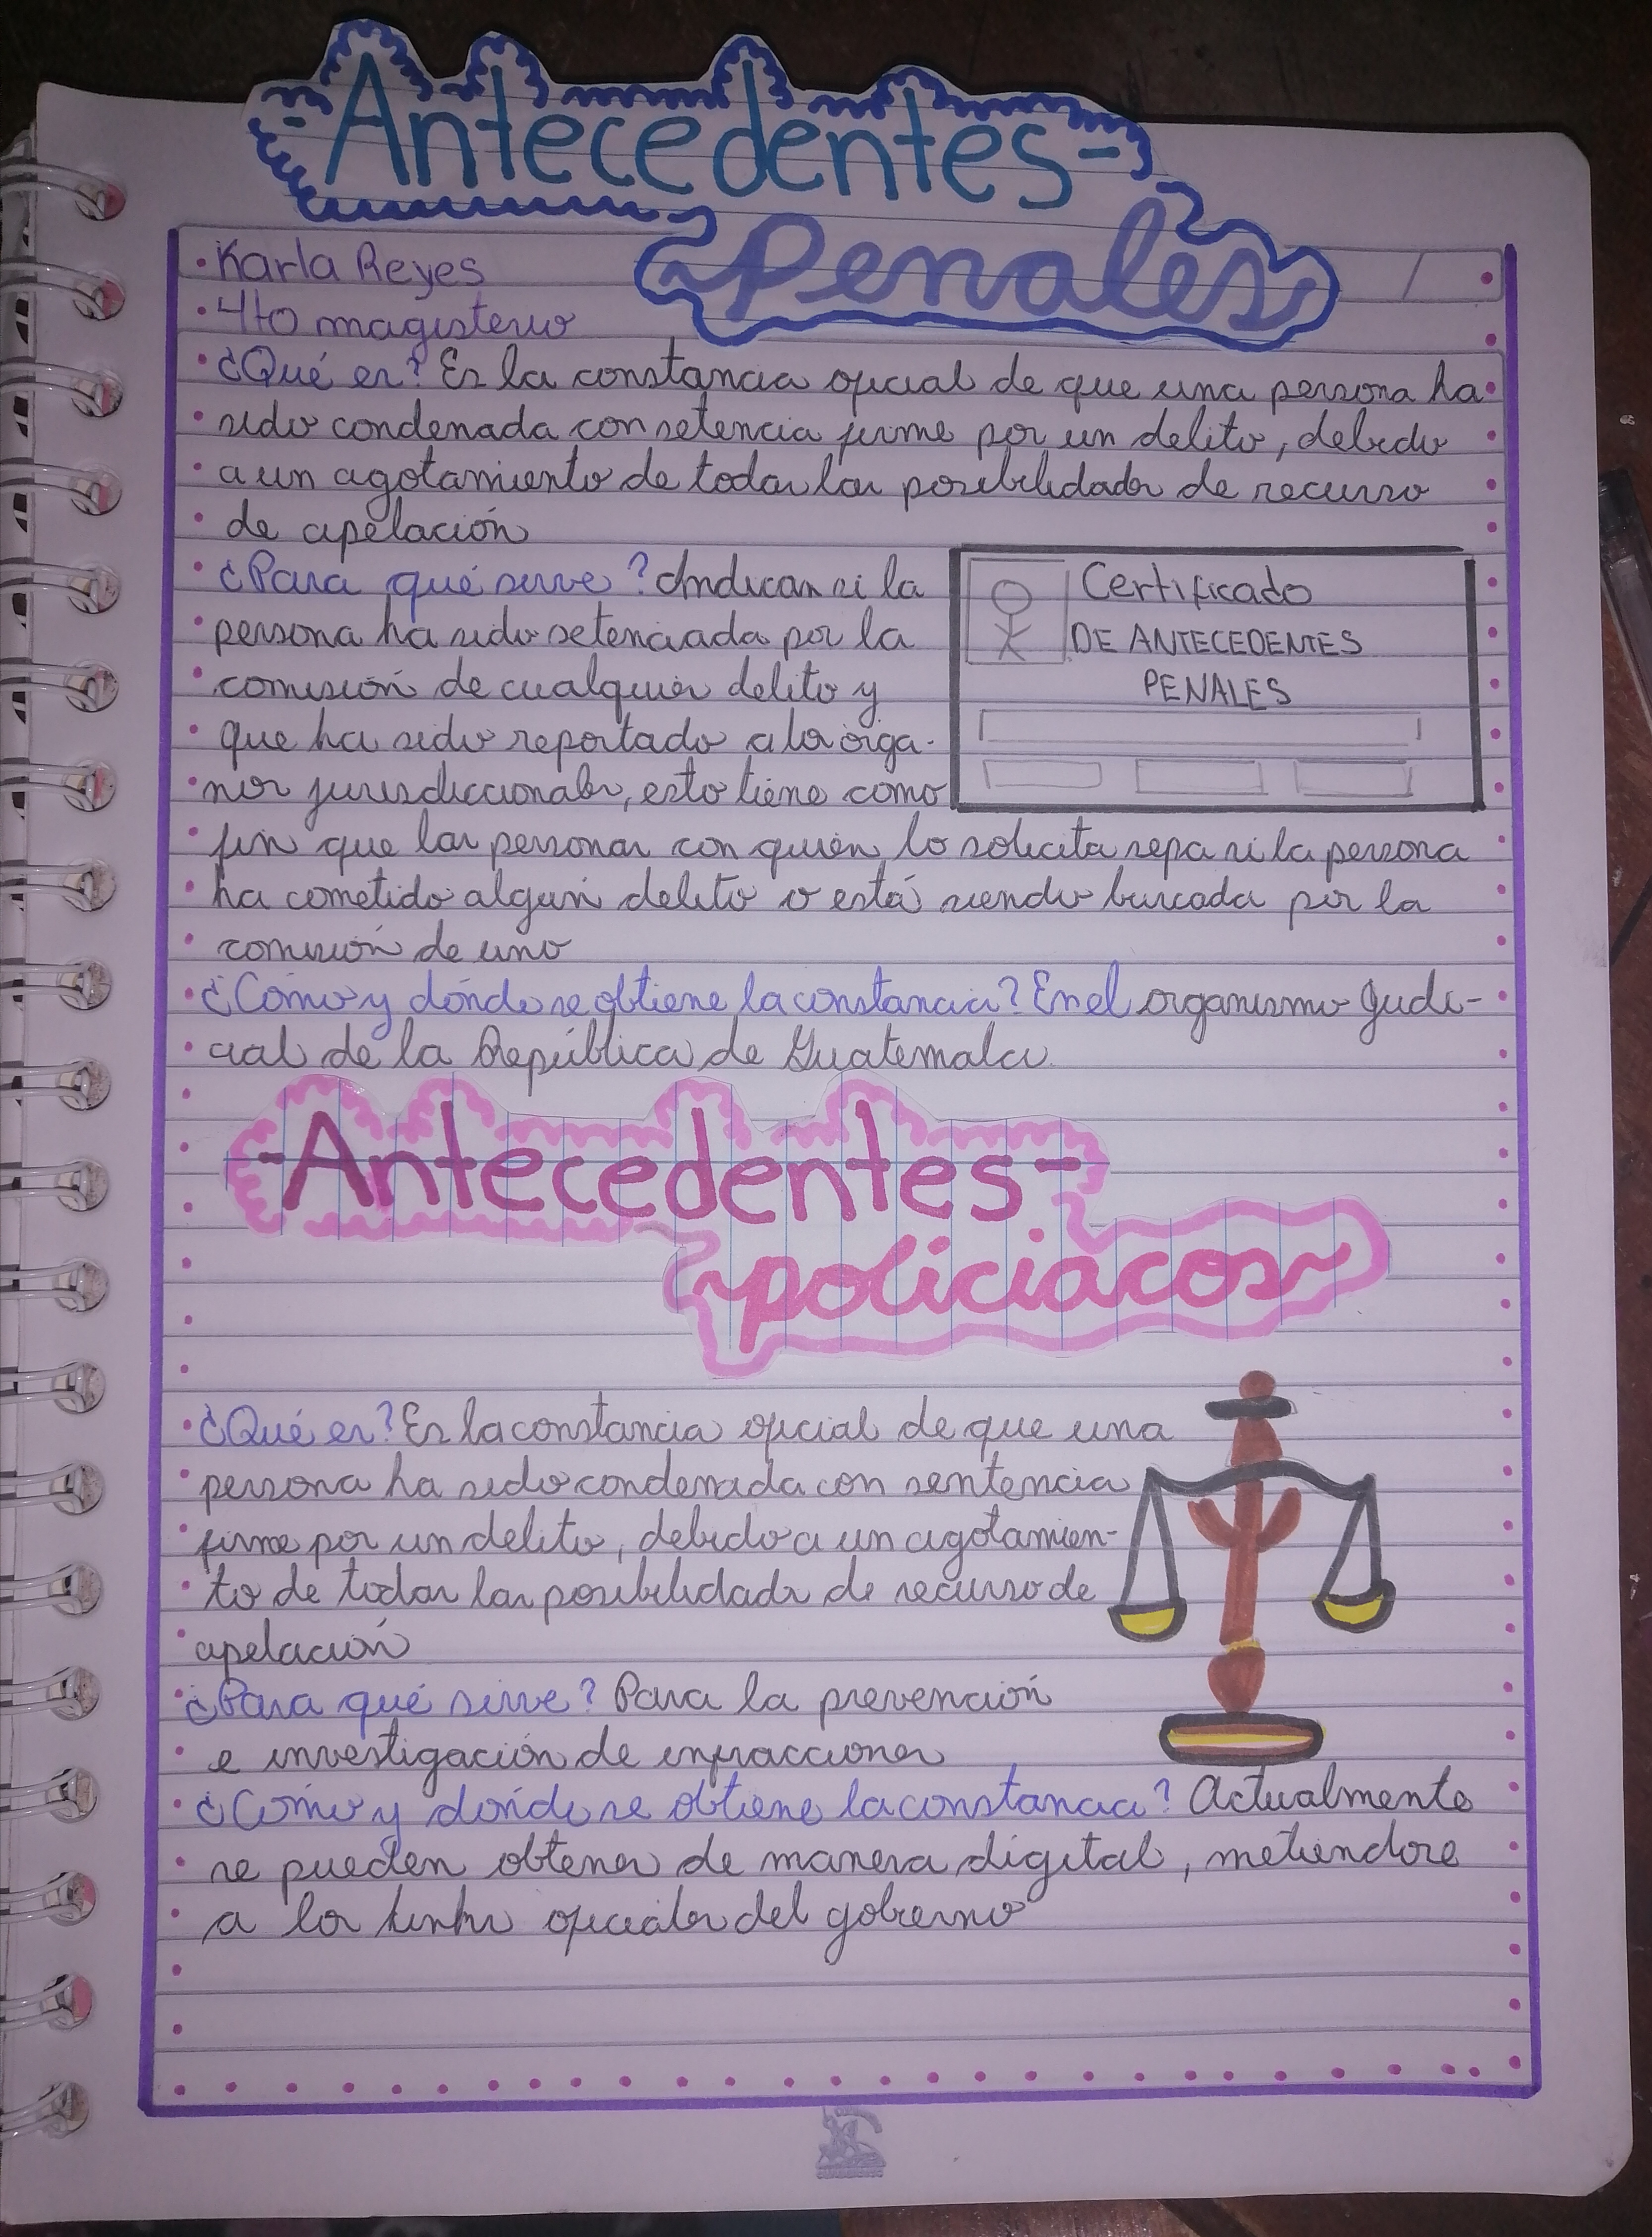 -Antecedentes-
~Penales~
Karla Reyes
4to magisterio
¿Qué es? Es la constancia oficial de que una persona ha
sido condenada con setencia firme por un delito, debido
a un agotamiento de todas las posibilidades de recurso
de apelación
¿Para qué sirve? Indican si la
persona ha sido setenciada por la
comisión de cualquier delito y
que ha sido reportado a los orga-
nos jurisdiccionales, esto tiene como
Certificado
DE ANTECEDENTES
PENALES
fin que las personas con quien lo solicita sepa si la persona
ha cometido algún delito o está siendo buscada por la
comisión de uno
¿Cómo y dónde se obtiene la constancia? En el organismo Judi-
cial de la República de Guatemala.
-Antecedentes-
~policiacos~
¿Qué es? Es la constancia oficial de que una
persona ha sido condenada con sentencia
firme por un delito, debido a un agotamien-
to de todas las posibilidades de recurso de
apelación
¿Para qué sirve? Para la prevención
e investigación de infracciones
¿Cómo y dónde se obtiene la constancia? Actualmente
se pueden obtener de manera digital, metiendose
a los oficiales del gobierno